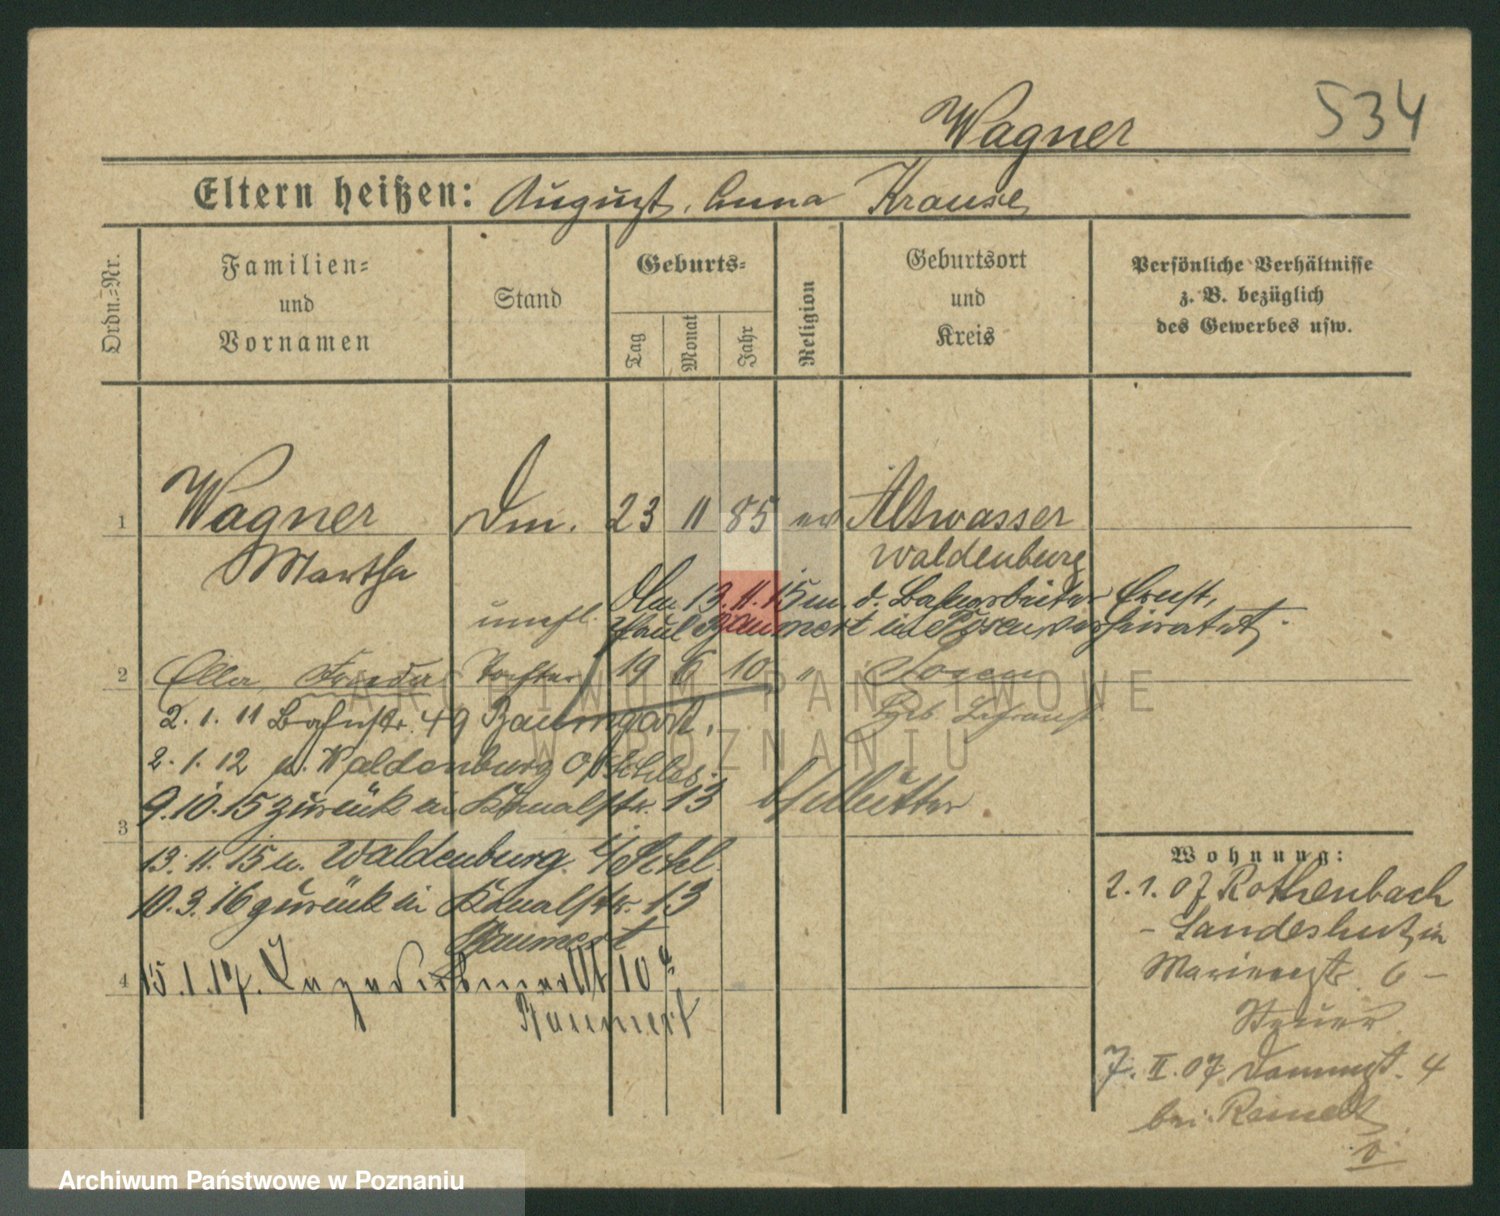 534
Wagner
Eltern heißen: August, Anna Krause
Ordn.=Nr.
Familien=
und
Vornamen
Stand
Geburts=
Tag
Monat
Jahr
Religion
Geburtsort
und
Kreis
Persönliche Verhältnisse
z. B. bezüglich
des Gewerbes usw.
1 Wagner 23 11 85 ev Altwasser
Martha Waldenburg
13.11.15 m. d. Bahnarbeiter Ernst,
Paul Baumert in Posen verheiratet.
2 Frieda Tochter 19 6 10 " Posen
2.1.11 Bahnstr. 49 Baumgart,
2.1.12 n. Waldenburg
9.10.15 zurück in Kanalstr. 13 b/Mutter
3
13.11.15 n. Waldenburg i/Schl.
10.3.16 zurück in Kanalstr. 13
Baumert
4 15.1.17. 10
Baumert
Wohnung:
2.1.07 Rothenbach
- Landeshut in
6 -
7.II.07 Dammst. 4
bei
ARCHIWUM PAŃSTWOWE
W POZNANIU
Archiwum Państwowe w Poznaniu